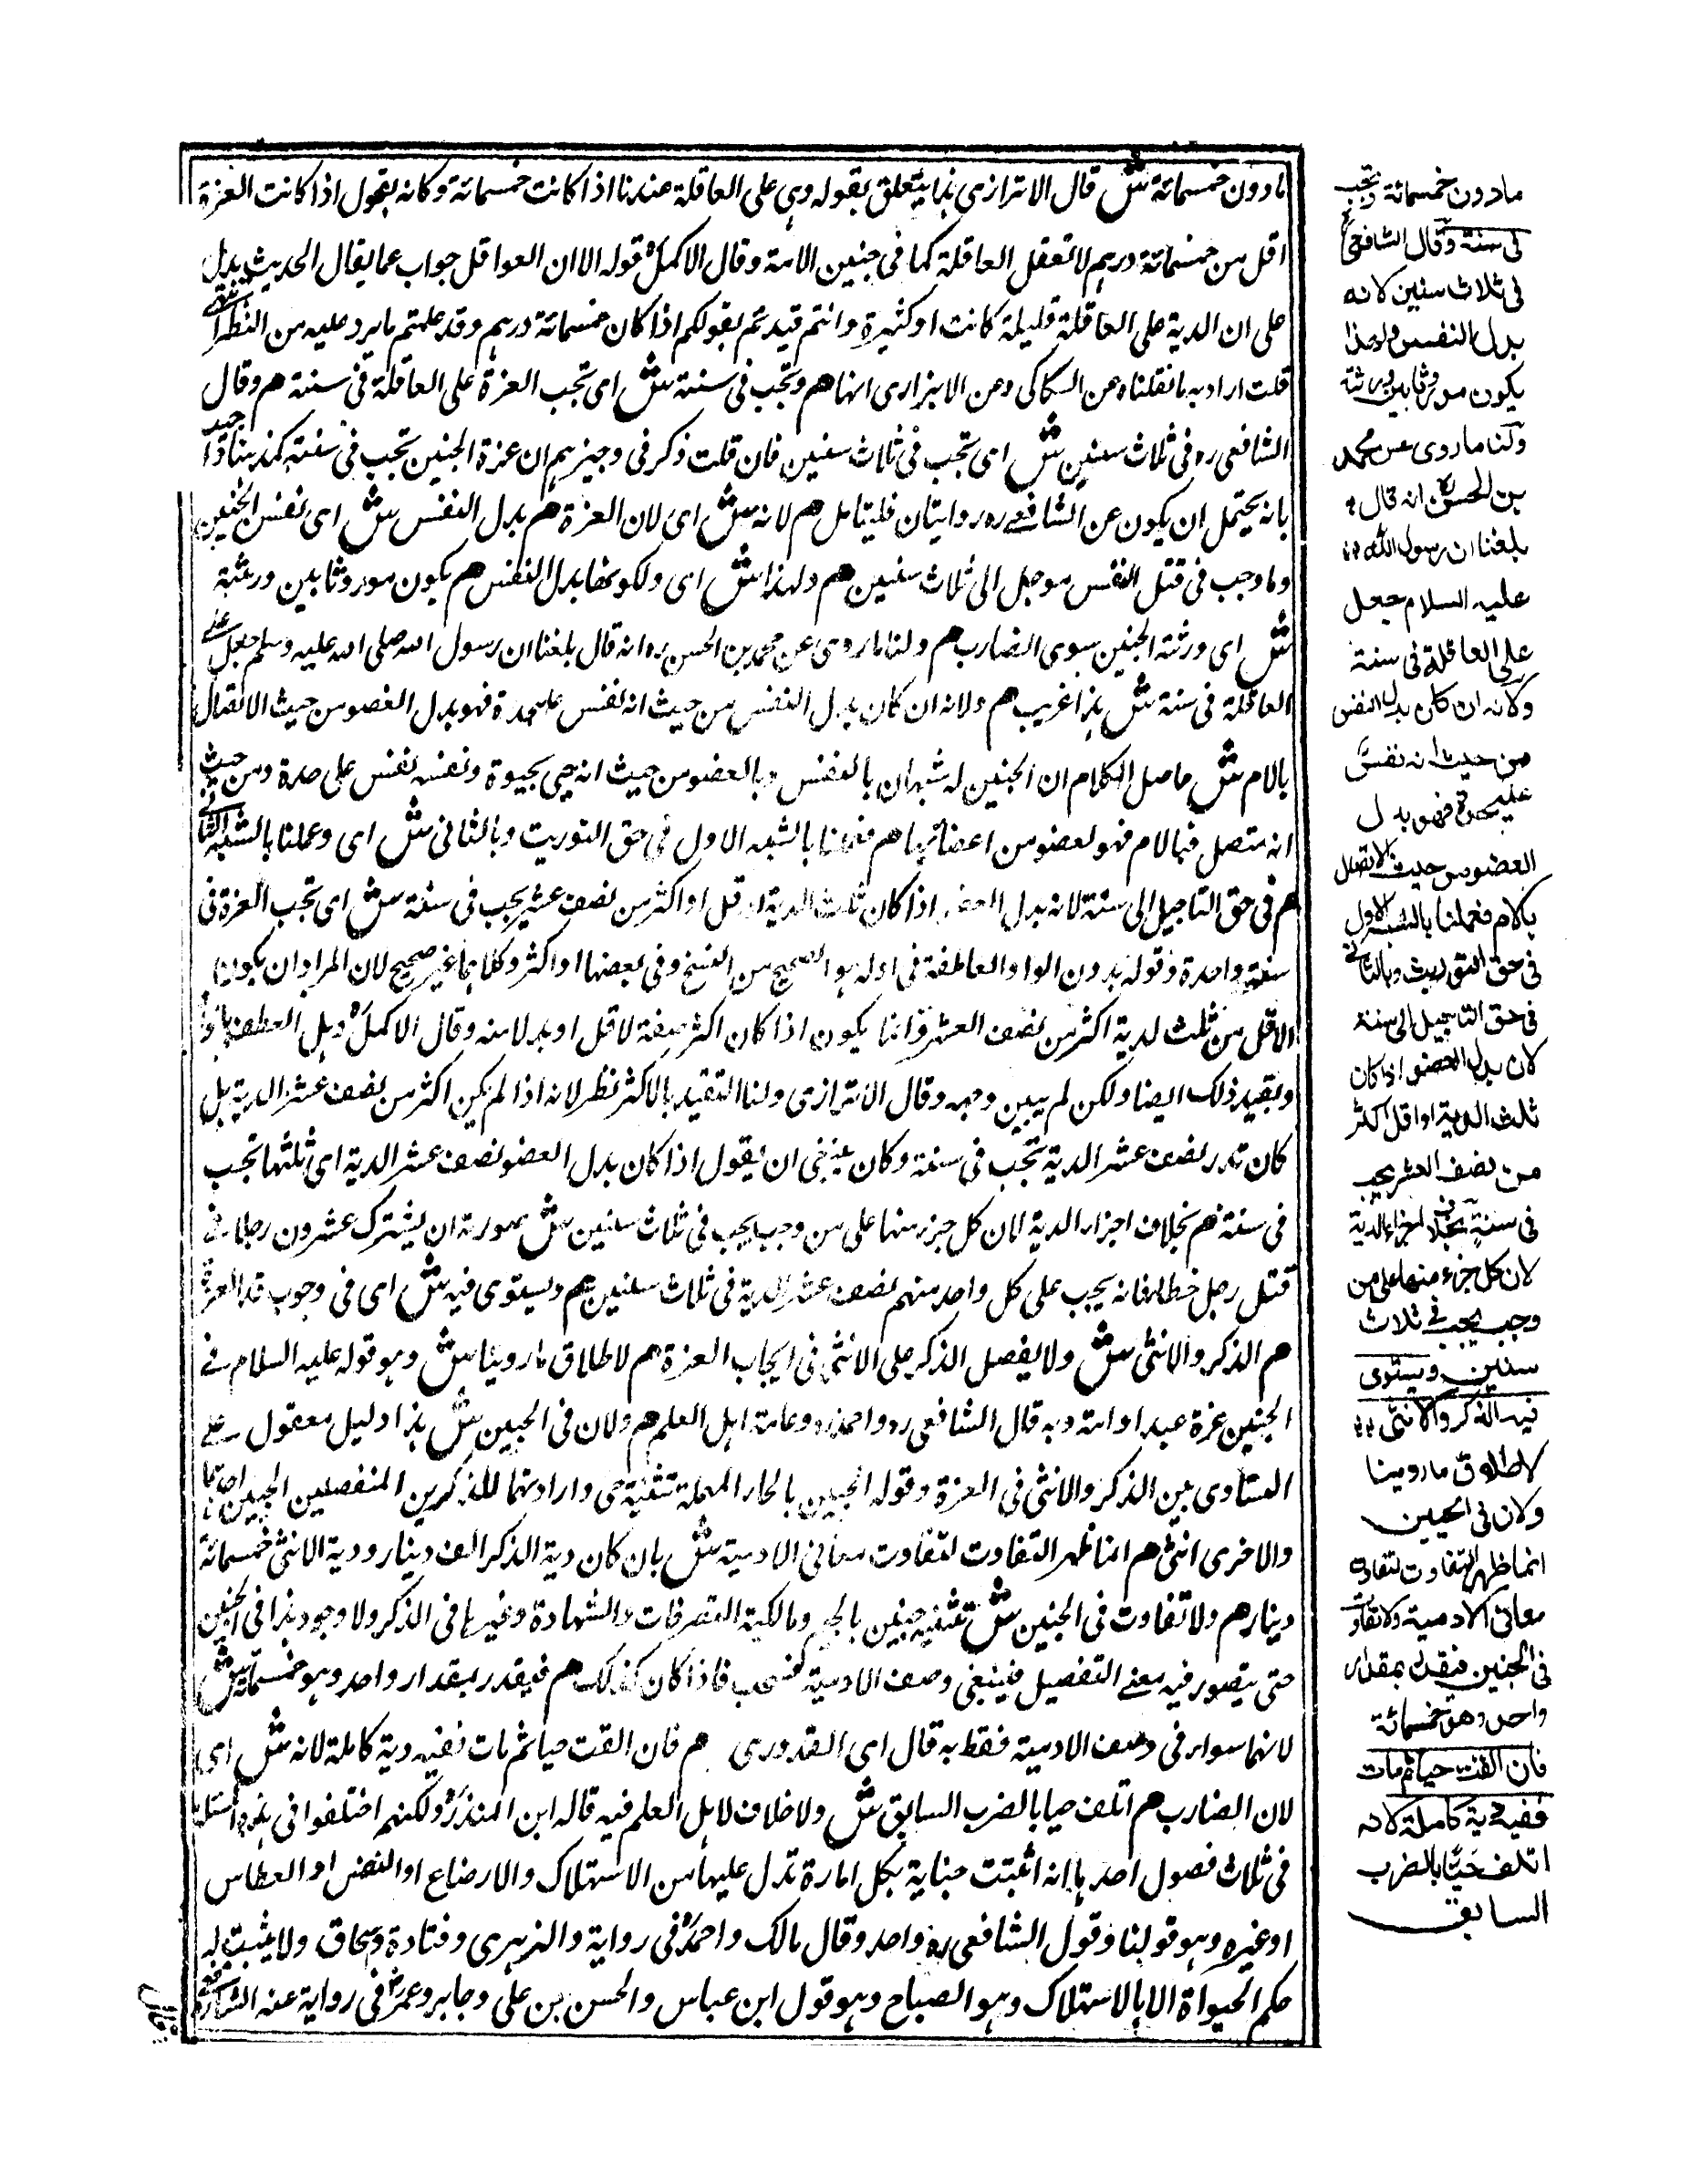 مادون خمسمائة ش قال الاترازى هذا يتعلق بقوله وهى على العاقلة عندنا اذا كانت خمسمائة وكانه يقول اذا كانت الغرة
اقل من خمسمائة درهم لا تعقل العاقلة كما فى جنين الامة وقال الاكمل قوله الا ان العواقل جواب عما يقال الحديث يدل
على ان الدية على العاقلة قليلة كانت او كثيرة وانتم قيدتم بقولكم اذا كان خمسمائة درهم وقد علمتم ما يرد عليه من النظر انتهى
قلت اراد به ما نقلناه عن السكاكى وعن الابزارى انها هم وتجب فى سنة ش اى تجب الغرة على العاقلة فى سنة هم وقال
الشافعى ره فى ثلاث سنين ش اى تجب فى ثلاث سنين فان قلت ذكر فى وجيزهم ان غرة الجنين تجب فى سنة كمذهبنا
بانه يحتمل ان يكون عن الشافعى ره روايتان فليتامل هم لانه ش اى لان الغرة هم بدل النفس ش اى نفس الجنين
وما وجب فى قتل النفس موجل الى ثلاث سنين هم ولهذا ش اى ولكونها بدل النفس هم يكون موروثا بين ورثته
ش اى ورثة الجنين سوى الضارب هم ولنا ما روى عن محمد بن الحسن ره انه قال بلغنا ان رسول الله صلى الله عليه وسلم جعل على
العاقلة فى سنة ش هذا غريب هم ولانه ان كان بدل النفس من حيث انه نفس عليحدة فهو بدل العضو من حيث الاتصال
بالام ش حاصل الكلام ان الجنين له شبهان بالنفس وبالعضو من حيث انه حيى بحيوة ونفسه نفس على حدة ومن حيث
انه متصل بالام فهو لعضو من اعضائها هم فعملنا بالشبه الاول فى حق التوريث وبالثانى ش اى وعملنا بالشبه الثانى
هم فى حق التاجيل الى سنة لانه بدل العضو اذا كان ثلث الدية او اقل او اكثر من نصف عشر يجب فى سنة ش اى تجب الغرة فى
سنة واحدة وقوله بدون الواو العاطفة فى اوله هو الصحيح من النسخ وفى بعضها او اكثر وكلاهما غير صحيح لان المراد ان يكون
الاقل من ثلث لدية اكثر من نصف العشر وانما يكون اذا كان اكثر صفة لاقل او بدلا منه وقال الاكمل وهل العطف
ويفيد ذلك ايضا ولكن لم يبين وجهه وقال الاترازى ولنا التقيد بالاكثر نظر لانه اذا لم يكن اكثر من نصف عشر الدية بل
كان قدر نصف عشر الدية تجب فى سنة وكان ينبغى ان يقول اذا كان بدل العضو نصف عشر الدية اى ثلثها تجب
فى سنة هم بخلاف اجزاء الدية لان كل جزء منها على من وجب يجب فى ثلاث سنين ش صورته ان يشترك عشرون رجلا فى
قتل رجل خطا فانه يجب على كل واحد منهم نصف عشر الدية فى ثلاث سنين هم ويستوى فيه ش اى فى وجوب قدر الغرة
هم الذكر والانثى ش ولا يفصل الذكر على الانثى فى ايجاب الغرة هم لاطلاق ما روينا ش وهو قوله عليه السلام فى
الجنين غرة عبد او امة وبه قال الشافعى ره واحمد ره وعامة اهل العلم هم ولان فى الحيين ش هذا دليل معقول على
التساوى بين الذكر والانثى فى الغرة وقوله الحيين بالحاء المهملة تثنية حى واراد بهما الذكرين المنفصلين الحيين احدهما
والاخرى انثى هم انما ظهر التفاوت لتفاوت معانى الادمية ش بان كان دية الذكر الف دينار ودية الانثى خمسمائة
دينار هم ولا تفاوت فى الجنين ش تثنيه جنين بالجيم ومالكية التصرفات والشهادة وغيرها فى الذكر ولا وجود هذا فى الجنين
حتى يتصور فيه معنى التفصيل فينبغى وصف الادمية فحسب فاذا كان كذلك هم فيقدر بمقدار واحد وهو خمسمائة ش
لانهما سواء فى وصف الادمية فقط به قال اى القدورى هم فان القت حيا ثم مات ففيه دية كاملة لانه ش اى
لان الضارب هم اتلف حيا بالضرب السابق ش ولا خلاف لاهل العلم فيه قاله ابن المنذر ولكنهم اختلفوا فى هذه المسئلة
فى ثلاث فصول احدها انه اثبتت جناية بكل امارة تدل عليها من الاستهلاك والارضاع او النفس او العطاس
او غيره وهو قولنا وقول الشافعى ره واحد وقال مالك واحمد فى رواية والزهرى وقتادة واسحاق ولا يثبت له
حكم الحيواة الا بالاستهلاك وهو الصباح وهو قول ابن عباس والحسن بن على وجابر وعمر فى رواية عنه
مادون خمسمائة وتجب
فى سنة وقال الشافعى
فى ثلاث سنين لانه
بدل النفس ولهذا
يكون موروثا بين ورثته
ولنا ما روى عن محمد
بن الحسن انه قال
بلغنا ان رسول الله
عليه السلام جعل
على العاقلة فى سنة
ولانه ان كان بدل النفس
من حيث انه نفس
عليحدة فهو بدل
العضو من حيث الاتصال
بالام فعملنا بالشبه الاول
فى حق التوريث وبالثانى
فى حق التاجيل الى سنة
لان بدل العضو اذا كان
ثلث الدية او اقل اكثر
من نصف العشر يجب
فى سنة بخلاف اجزاء الدية
لان كل جزء منها على من
وجب يجب فى ثلاث
سنين ويستوى
فيه الذكر والانثى
لاطلاق ما روينا
ولان فى الحيين
انما ظهر التفاوت لتفاوت
معانى الادمية ولا تفاوت
فى الجنين فيقدر بمقدار
واحد وهو خمسمائة
فان القت حيا ثم مات
ففيه دية كاملة لانه
اتلف حيا بالضرب
السابق